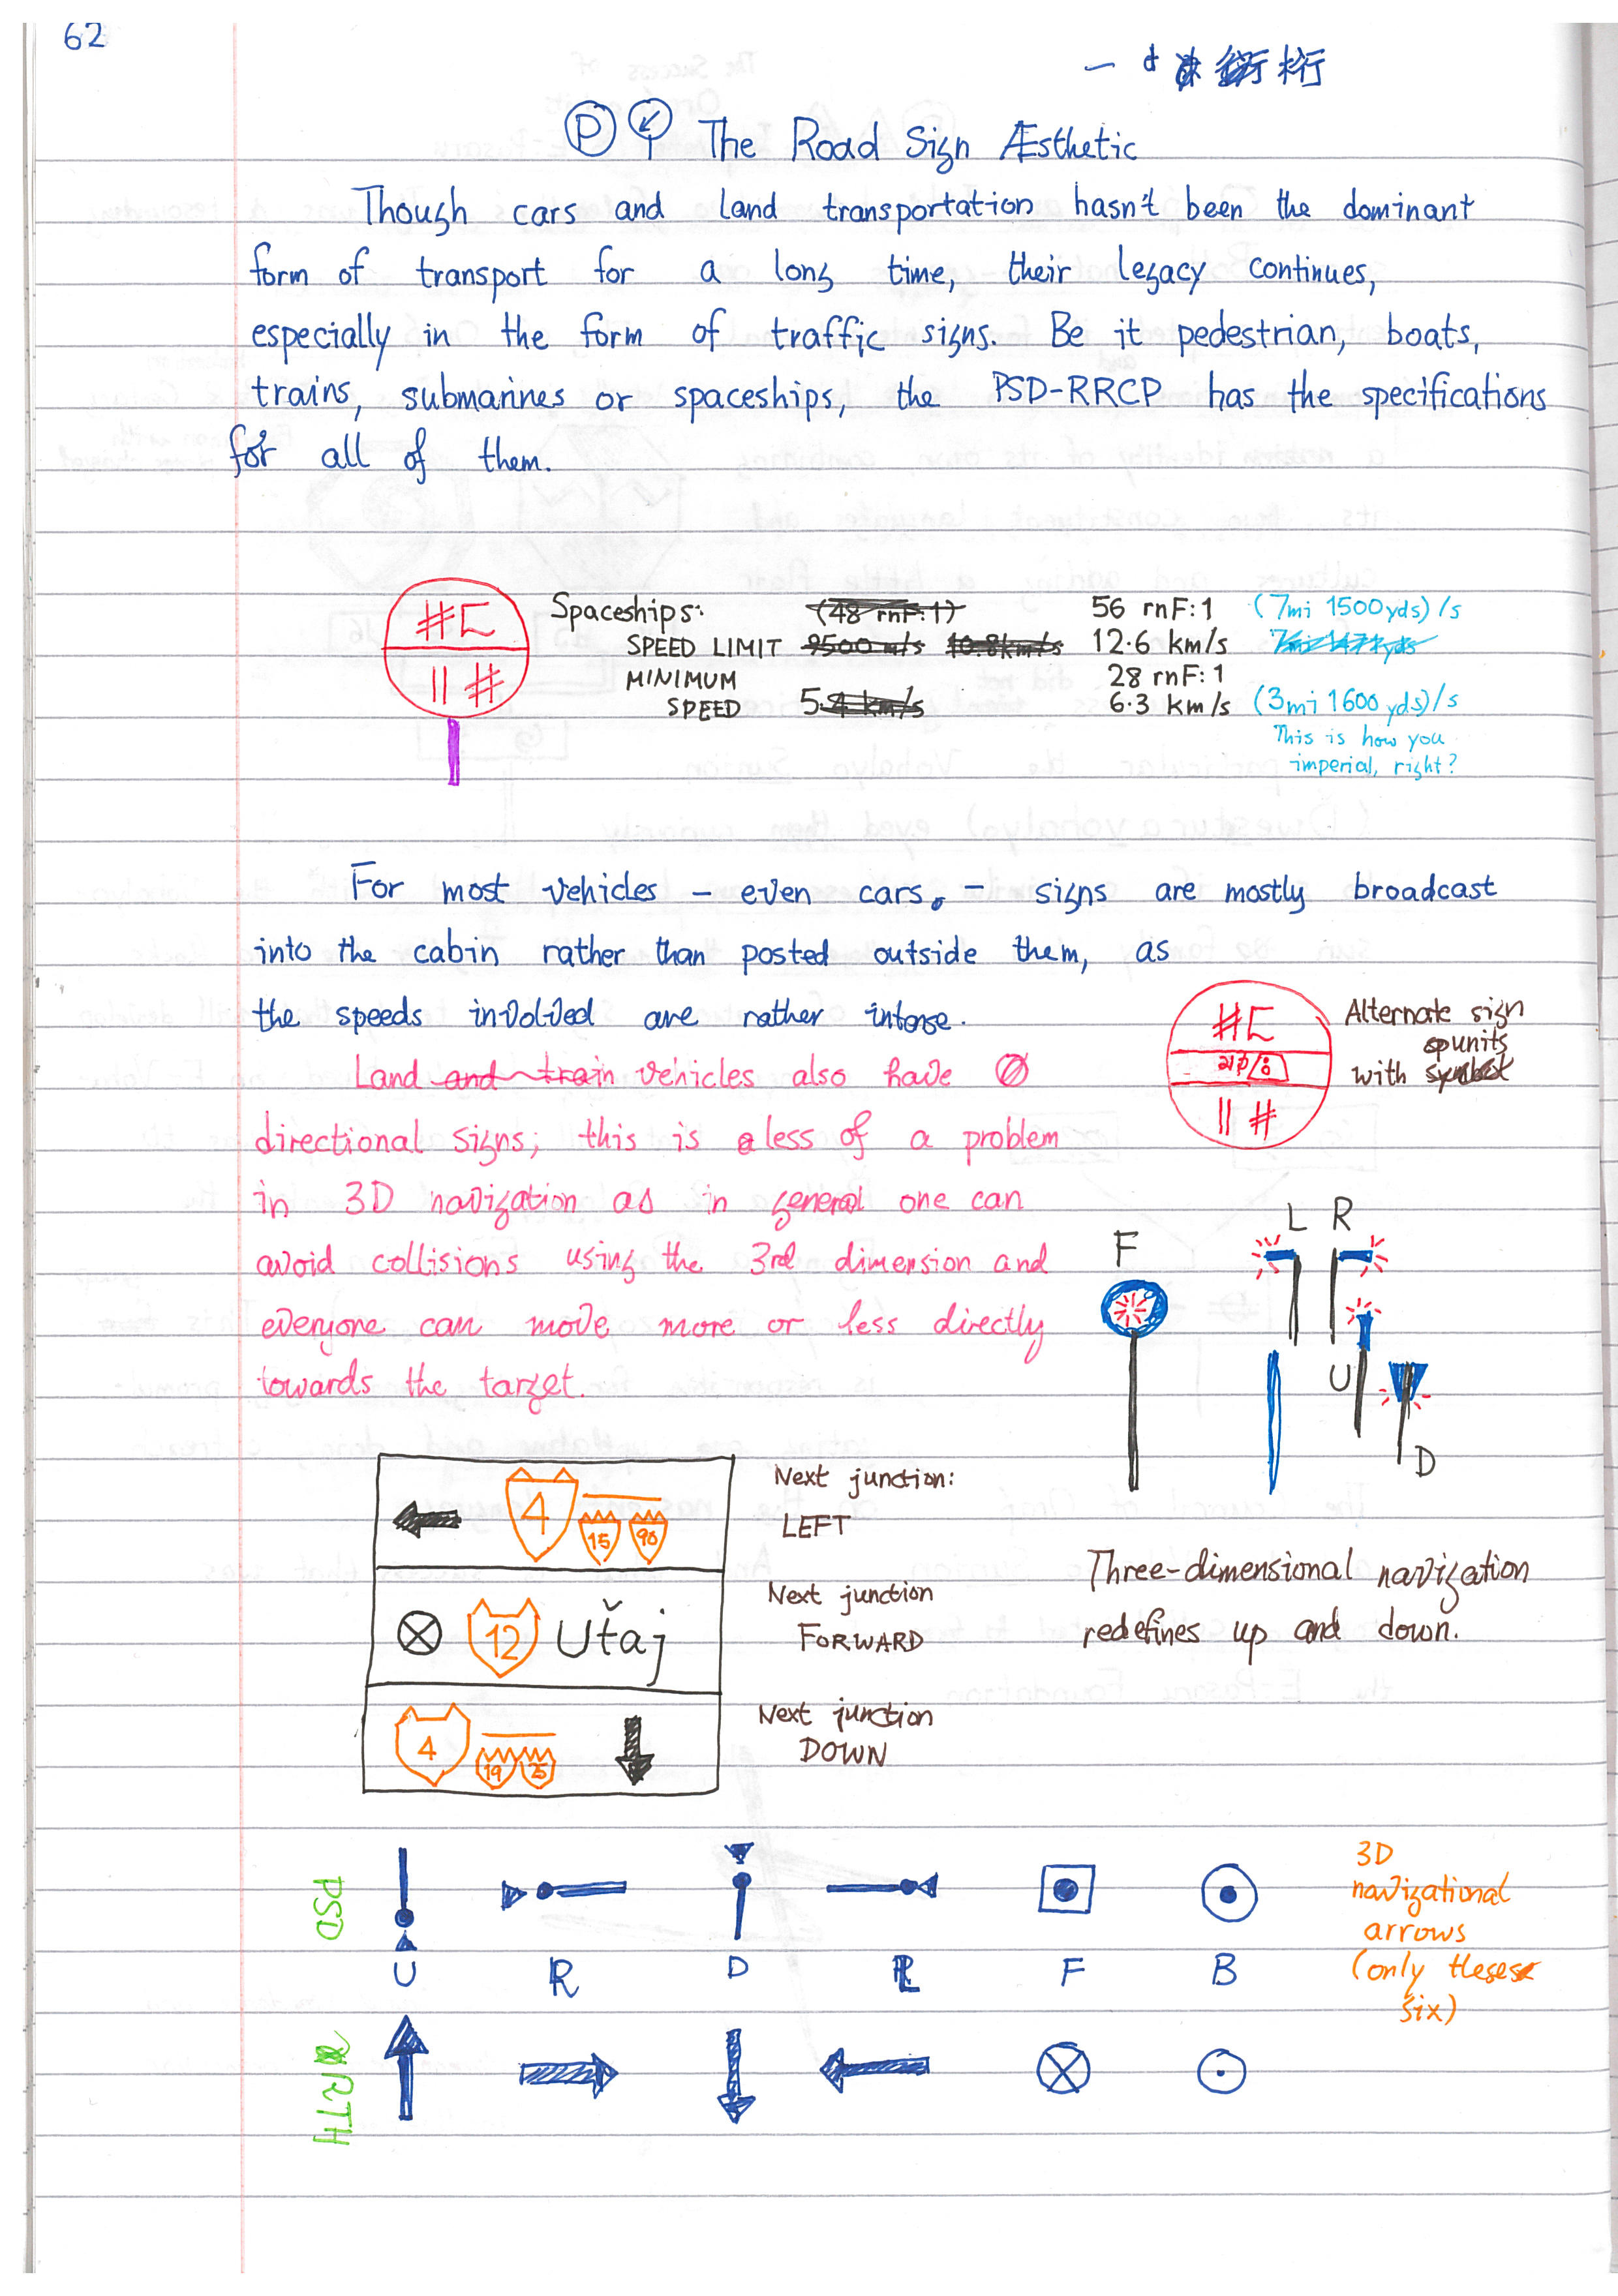 62
一 桁
P The Road Sign Æsthetic
Though cars and land transportation hasn't been the dominant
form of transport for a long time, their legacy continues,
especially in the form of traffic signs. Be it pedestrian, boats,
trains, submarines or spaceships, the PSD-RRCP has the specifications
for all of them.
Spaceships: (48 rnF:1) 56 rnF:1 (7mi 1500yds)/s
SPEED LIMIT 9500 m/s 10.8km/s 12.6 km/s
MINIMUM 28 rnF:1
SPEED 5.4 km/s 6.3 km/s (3mi 1600yds)/s
This is how you
imperial, right?
For most vehicles – even cars – signs are mostly broadcast
into the cabin rather than posted outside them, as
the speeds involved are rather intense.
Alternate sign
units
with
Land and train vehicles also have
directional signs; this is less of a problem
in 3D navigation as in general one can
avoid collisions using the 3rd dimension and
everyone can move more or less directly
towards the target.
F L R
U D
4 15 90
Next junction:
LEFT
12 Uťaj
Next junction
FORWARD
4 19 25
Next junction
DOWN
Three-dimensional navigation
redefines up and down.
PSD
U R D L F B
3D
navigational
arrows
(only these
six)
RTH